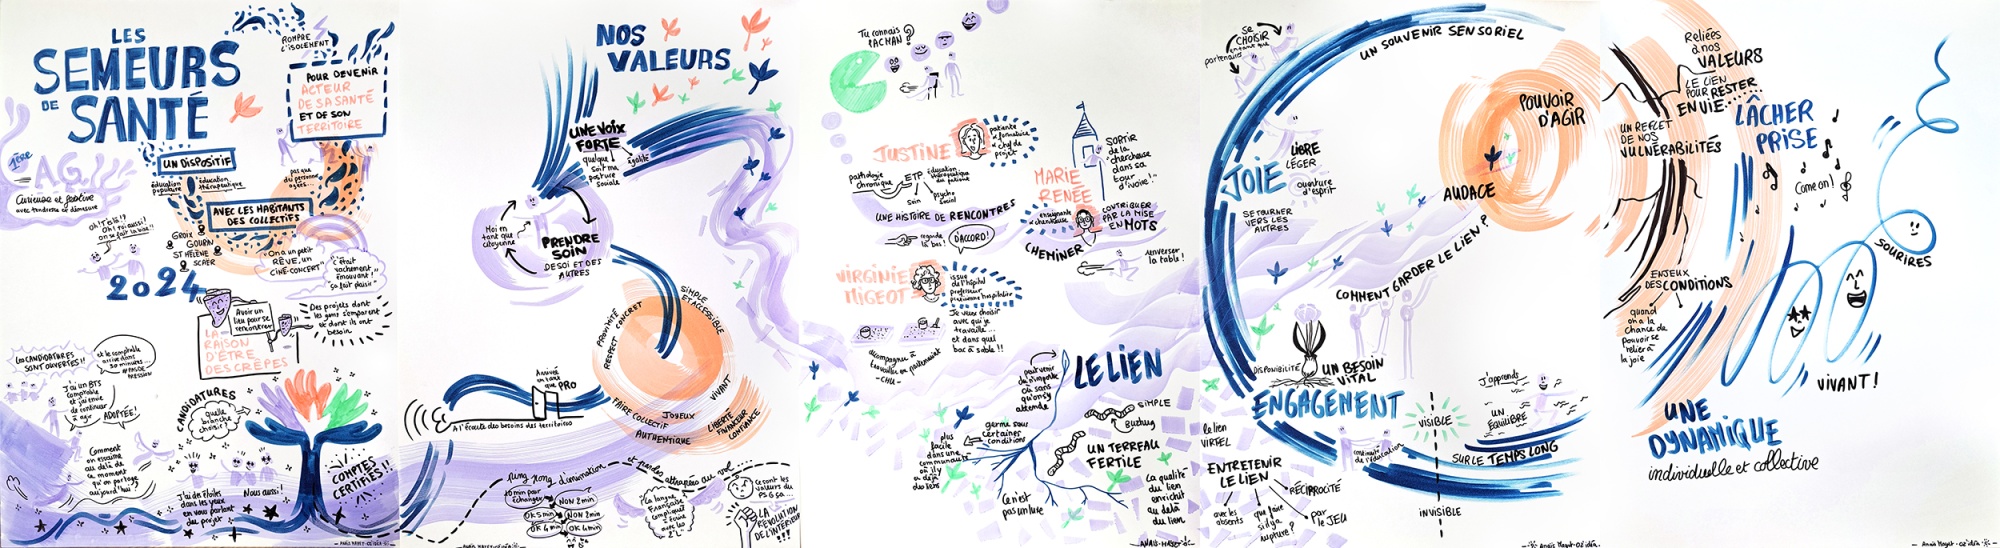 LES
SEMEURS
DE
SANTÉ
ROMPRE
L'ISOLEMENT
POUR DEVENIR
ACTEUR
DE SA SANTÉ
ET DE SON
TERRITOIRE
1ÈRE
A.G.
Curieuse et festive
avec tendresse et démesure
UN DISPOSITIF
éducation
populaire
éducation
thérapeutique
pas que
du personnes
agées...
AVEC LES HABITANTS
DES COLLECTIFS
GROIX
GOURIN
ST HÉLÈNE
SCAER
"On a un petit
RÊVE, un
CINÉ-CONCERT"
"C'était
vachement
émouvant!
ça fait plaisir"
2024
Avoir un
lieu pour se
rencontrer
LA
RAISON
D'ÊTRE
DES CRÊPES
Des projets dont
les gens s'emparent
et dont ils ont
besoin.
Les CANDIDATURES
SONT OUVERTES!!
et le comptable
arrive dans
30 minutes...
#PAS DE
PRESSION
J'ai un BTS
comptable
et j'ai envie
de continuer
à agir
ADOPTÉE!
CANDIDATURES
quelle
branche
choisir?
Comment
on essaime
au delà de
ce moment
qu'on partage
aujourd'hui?
J'ai des étoiles
dans les yeux
en vous parlant
du projet
Nous aussi!
COMPTES
CERTIFIÉS!!
NOS
VALEURS
UNE VOIX
FORTE
quelque
soit ma
posture
sociale
égalité
Moi en
tant que
citoyenne
PRENDRE
SOIN
DE SOI ET DES
AUTRES
SIMPLE
ET ACCESSIBLE
PROXIMITÉ
RESPECT
CONCRET
VIVANT
FAIRE COLLECTIF
JOYEUX
AUTHENTIQUE
LIBERTÉ
FINANCEUR
CONFIANCE
Arrivée
en tant
que PRO
A l'écoute des besoins des territoires
ping pong d'animation
et paroles attrapées au vol...
10 min pour
échanger
NON 2 min
OK 5 min
NON 2 min
OK 4 min
OK 4 min
"La langue
Française
compliqué
s'écrire
avec les
2 'L'"
Ce sont les
valeurs du
PSG ça...
LA
RÉVOLUTION
DE L'INTÉRIEUR
!!!
Tu connais
PACMAN?
JUSTINE
patiente
formatrice
chef de
projet
pathologie
chronique
ETP
éducation
thérapeutique
du patient
soin
psycho
social
UNE HISTOIRE DE RENCONTRES
regarde
là bas!
D'ACCORD!
MARIE
RENÉE
SORTIR
de la
"chercheuse
dans sa
tour
d'ivoire!"
enseignante
chercheuse
CONTRIBUER
PAR LA MISE
EN MOTS
CHEMINER
renverser
la table!
VIRGINIE
MIGEOT
issue
de l'hôpital
professeur
praticienne hospitalier
Je veux choisir
avec qui je
travaille...
et dans quel
bac à sable!!
accompagner &
travailler en partenariat
- CHU -
LE LIEN
peut venir
de n'importe
où sans
qu'on s'y
attende
germe sous
certaines
conditions
plus
facile
dans une
communauté
où il y
a déjà
du lien
SIMPLE
Buzhug
UN TERREAU
FERTILE
Ce n'est
pas un luxe
La qualité
du lien
enrichit
au delà
du lien
se
CHOISIR
en tant que
partenaires
UN SOUVENIR SENSORIEL
POUVOIR
D'AGIR
AUDACE
JOIE
LIBRE
LÉGER
ouverture
d'esprit
SE TOURNER
VERS LES
AUTRES
COMMENT GARDER LE LIEN?
DISPONIBILITÉ
UN BESOIN
VITAL
ENGAGEMENT
le lien
VIRTEL
VISIBLE
INVISIBLE
J'apprends
UN
ÉQUILIBRE
SUR LE TEMPS LONG
ENTRETENIR
LE LIEN
avec les
absents
que faire
si d y a
rupture?
Par
le JEU
RÉCIPROCITÉ
Reliées
à nos
VALEURS
LE LIEN
POUR RESTER
EN VIE...
UN REFLET
DE NOS
VULNÉRABILITÉS
LÂCHER
PRISE
Come on!
ENJEUX
DES CONDITIONS
quand
on a la
chance de
pouvoir se
relier à
la joie
SOURIRES
VIVANT!
UNE
DYNAMIQUE
individuelle et collective